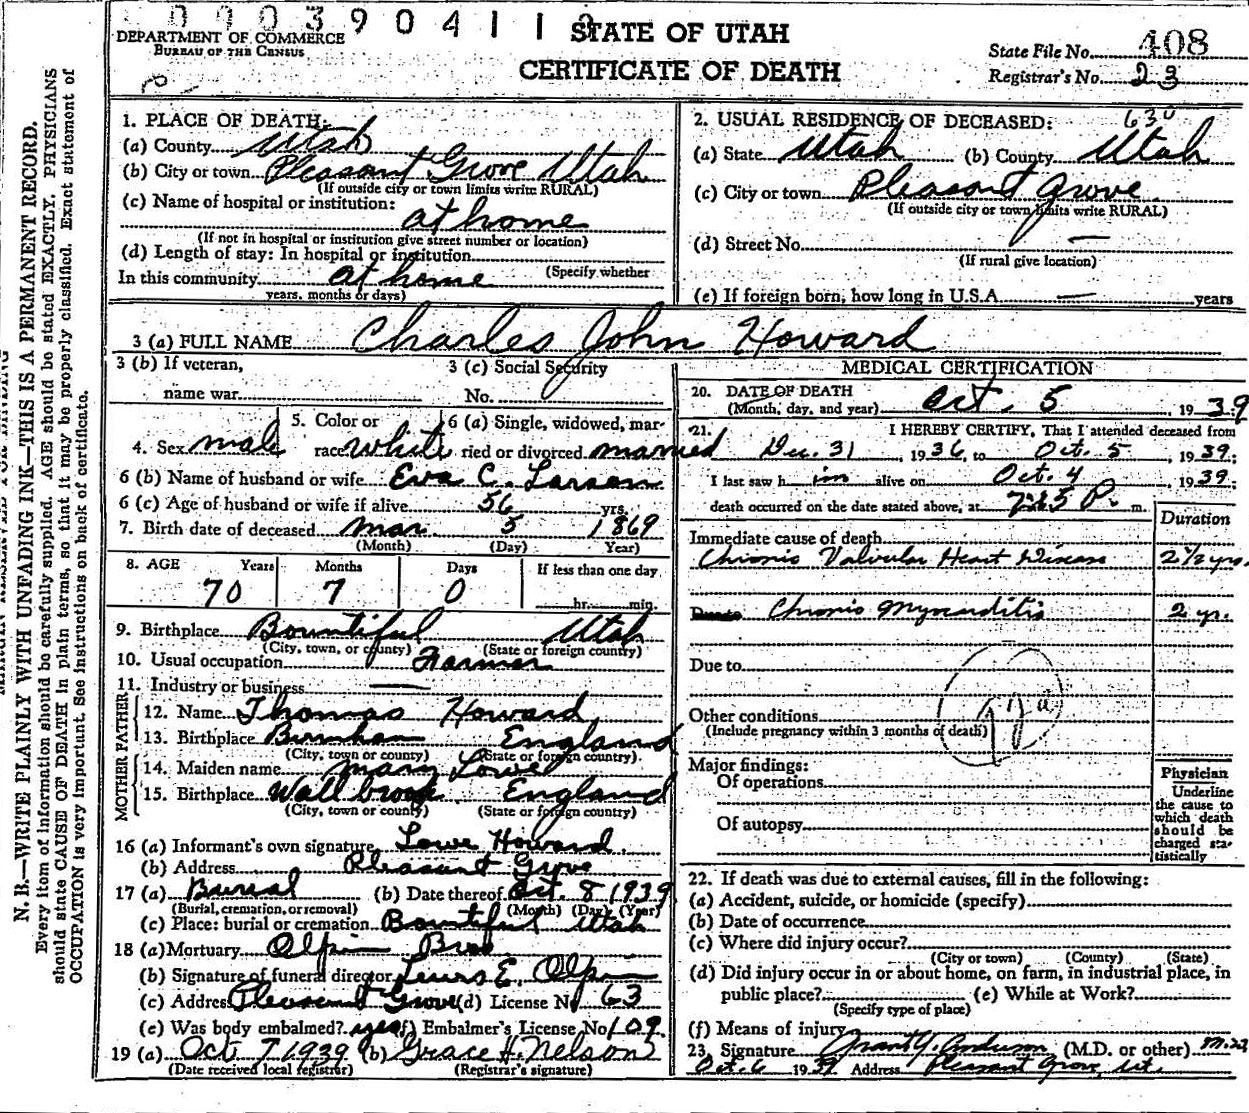 0 0 0 3 9 0 4 1 1
STATE OF UTAH
CERTIFICATE OF DEATH
DEPARTMENT OF COMMERCE
BUREAU OF THE CENSUS
State File No. 408
Registrar's No. 23
N. B.—WRITE PLAINLY WITH UNFADING INK—THIS IS A PERMANENT RECORD.
Every item of information should be carefully supplied. AGE should be stated EXACTLY. PHYSICIANS
should state CAUSE OF DEATH in plain terms, so that it may be properly classified. Exact statement of
OCCUPATION is very important. See instructions on back of certificate.
1. PLACE OF DEATH:
(a) County Utah
(b) City or town Pleasant Grove Utah
(If outside city or town limits write RURAL)
(c) Name of hospital or institution:
at home
(If not in hospital or institution give street number or location)
(d) Length of stay: In hospital or institution
(Specify whether
In this community at home
years, months or days)
2. USUAL RESIDENCE OF DECEASED: 630
(a) State Utah (b) County Utah
(c) City or town Pleasant Grove
(If outside city or town limits write RURAL)
(d) Street No. —
(If rural give location)
(e) If foreign born, how long in U.S.A. — years
3 (a) FULL NAME Charles John Howard
3 (b) If veteran, name war
3 (c) Social Security No.
4. Sex male 5. Color or race white 6 (a) Single, widowed, married or divorced married
6 (b) Name of husband or wife Eva C. Larson
6 (c) Age of husband or wife if alive 56 yrs.
7. Birth date of deceased Mar. 5 1869
(Month) (Day) (Year)
8. AGE Years Months Days If less than one day
70 7 0 hr. min.
9. Birthplace Bountiful Utah
(City, town, or county) (State or foreign country)
10. Usual occupation Farmer
11. Industry or business —
FATHER
12. Name Thomas Howard
13. Birthplace Burnham England
(City, town or county) (State or foreign country)
MOTHER
14. Maiden name Mary Lowe
15. Birthplace Wallbrook England
(City, town or county) (State or foreign country)
16 (a) Informant's own signature Lowe Howard
(b) Address Pleasant Grove
17 (a) Burial (b) Date thereof Oct. 8 1939
(Burial, cremation, or removal) (Month) (Day) (Year)
(c) Place: burial or cremation Bountiful Utah
18 (a) Mortuary Olpin Bros
(b) Signature of funeral director Lewis E. Olpin
(c) Address Pleasant Grove (d) License No 63
(e) Was body embalmed? yes (f) Embalmer's License No 109
19 (a) Oct 7 1939 (b) Grace H. Nelson
(Date received local registrar) (Registrar's signature)
MEDICAL CERTIFICATION
20. DATE OF DEATH
(Month, day, and year) Oct. 5, 1939;
21. I HEREBY CERTIFY, That I attended deceased from
Dec. 31, 1936, to Oct. 5, 1939;
I last saw him alive on Oct. 4, 1939;
death occurred on the date stated above, at P. m.
Duration
Immediate cause of death
Chronic Valvular Heart Disease 2 1/2 yrs.
Due to Chronic Myocarditis 2 yr.
Due to
Other conditions
(Include pregnancy within 3 months of death)
Major findings:
Of operations
Of autopsy
Physician
Underline
the cause to
which death
should be
charged sta-
tistically
22. If death was due to external causes, fill in the following:
(a) Accident, suicide, or homicide (specify)
(b) Date of occurrence
(c) Where did injury occur?
(City or town) (County) (State)
(d) Did injury occur in or about home, on farm, in industrial place, in
public place? (e) While at Work?
(Specify type of place)
(f) Means of injury
23. Signature Grant Y. Anderson (M.D. or other) M.D.
Oct. 6 1939 Address Pleasant Grove, Ut.